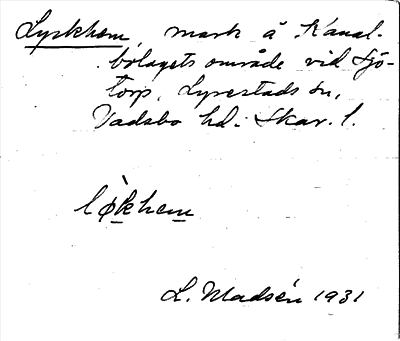 Lyrkhem, mark å Kanal-
bolagets område vid Sjö-
torp, Lyrestads sn,
Vadsbo hd. Skar. l.
lø̀khem
L. Madsén 1931